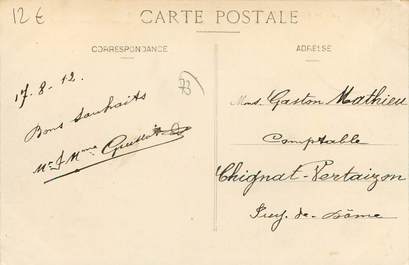 12 €
CARTE POSTALE
CORRESPONDANCE
ADRESSE
73
17-8-12.
Bons souhaits
Mr & Mme
Mons. Gaston Mathieu
Comptable
Chignat-Vertaizon
Puy-de-Dôme